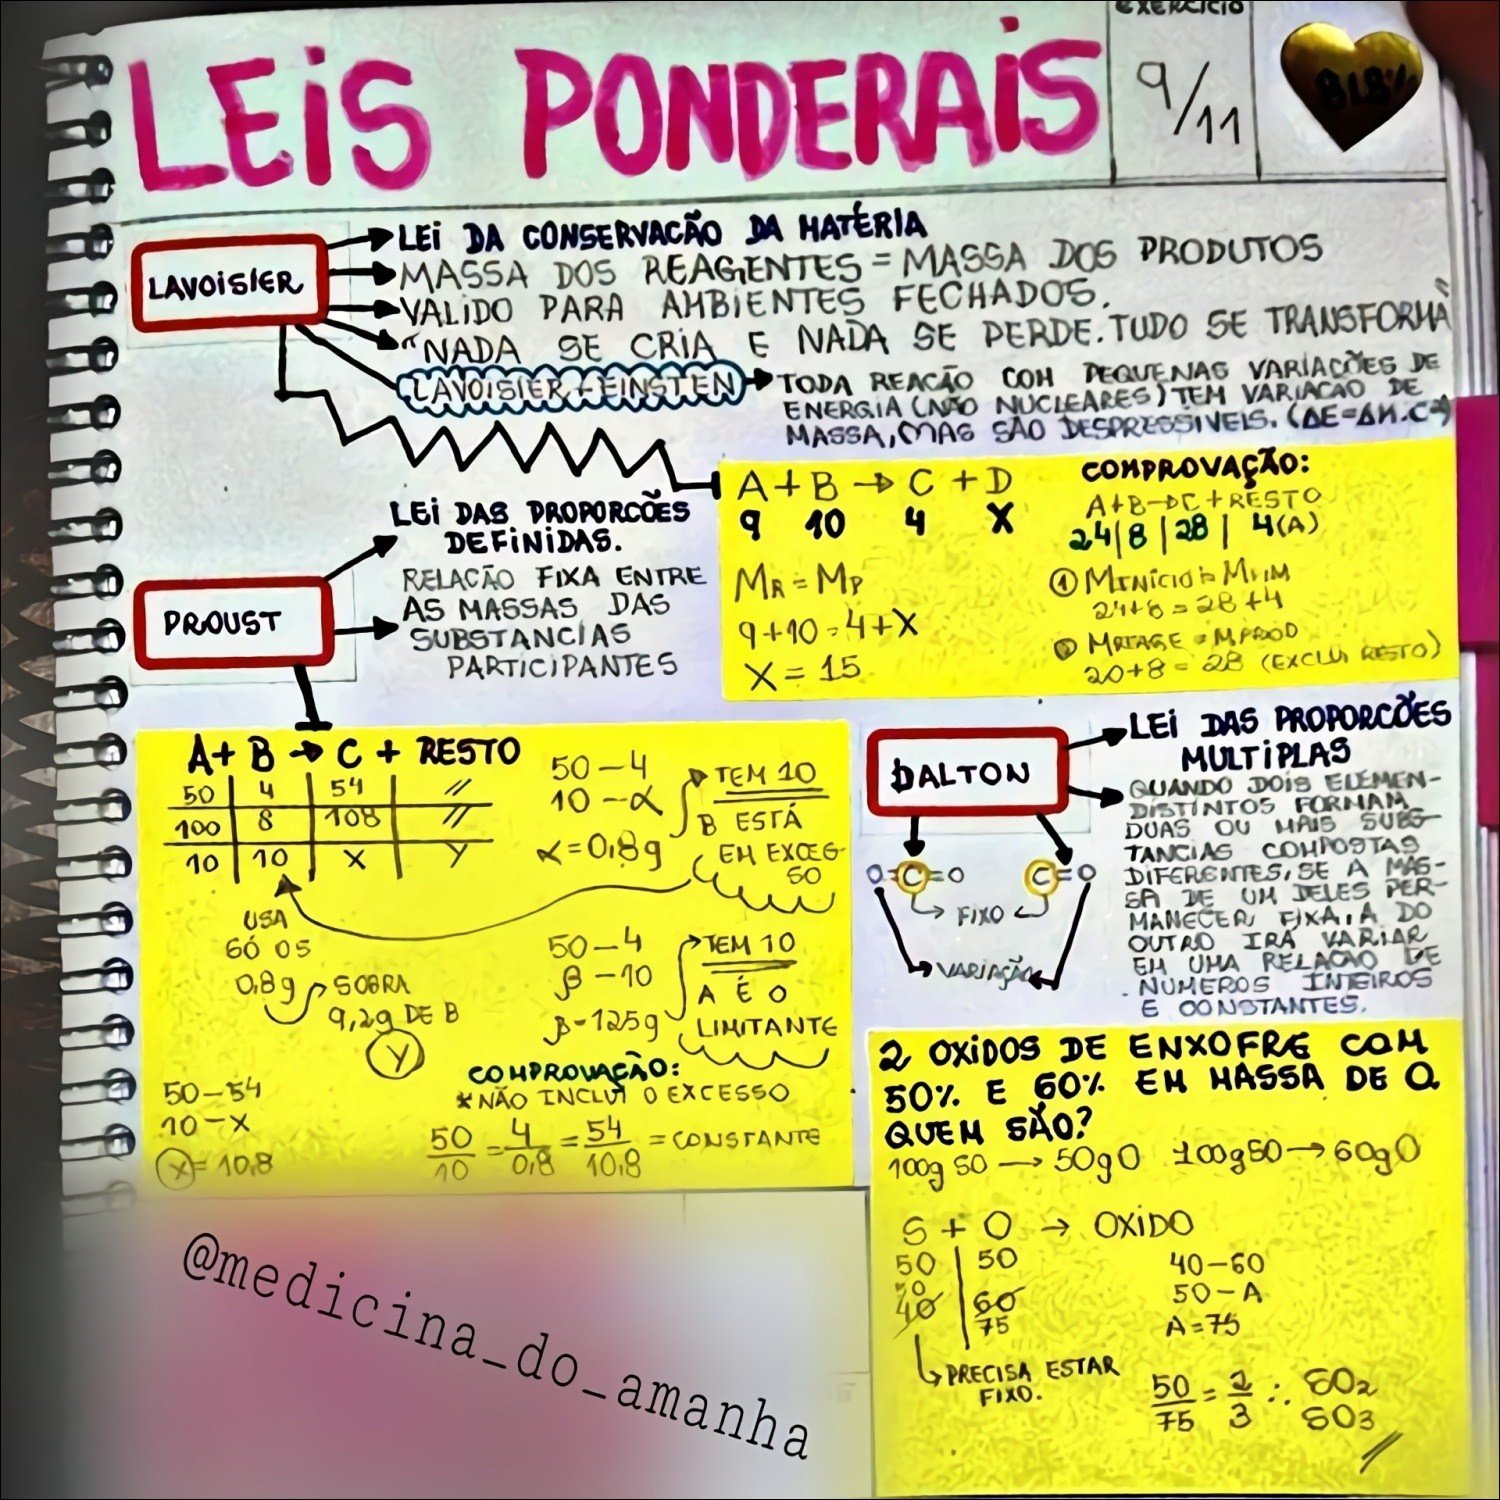 LEIS PONDERAIS
EXERCÍCIO
9/11
LAVOISIER
LEI DA CONSERVACÃO DA MATÉRIA
MASSA DOS REAGENTES = MASSA DOS PRODUTOS
VALIDO PARA AMBIENTES FECHADOS.
"NADA SE CRIA E NADA SE PERDE. TUDO SE TRANSFORMA"
LAVOISIER + EINSTEN
TODA REACÃO COM PEQUENAS VARIACÕES DE
ENERGIA (NÃO NUCLEARES) TEM VARIACAO DE
MASSA, MAS SÃO DESPRESSIVEIS. (ΔE=ΔM.C²)
A + B → C + D
9 10 4 X
MR = MP
9+10=4+X
X = 15
COMPROVAÇÃO:
A+B→C+RESTO
24|8|28| 4(A)
① MINÍCIO = MFIM
24+8=28+4
② MREAGE = MPROD
20+8=28 (EXCLUI RESTO)
PROUST
LEI DAS PROPORCÕES
DEFINIDAS.
RELACÃO FIXA ENTRE
AS MASSAS DAS
SUBSTANCIAS
PARTICIPANTES
A+ B → C + RESTO
50 | 4 | 54 | //
100 | 8 | 108 | //
10 | 10 | X | Y
USA
SÓ OS
0,8g
SOBRA
9,2g DE B
Y
50 – 4
10 – α
α=0,8g
TEM 10
B ESTÁ
EM EXCES-
SO
50 – 4
β – 10
β=125g
TEM 10
A É O
LIMITANTE
50–54
10–X
X = 10,8
COMPROVAÇÃO:
*NÃO INCLUI O EXCESSO
50/10 = 4/0,8 = 54/10,8 = CONSTANTE
DALTON
LEI DAS PROPORCÕES
MULTIPLAS
QUANDO DOIS ELEMEN-
DISTINTOS FORMAM
DUAS OU MAIS SUBS-
TANCIAS COMPOSTAS
DIFERENTES, SE A MAS-
SA DE UM DELES PER-
MANECER FIXA, A DO
OUTRO IRÁ VARIAR
EM UMA RELACAO DE
NUMEROS INTEIROS
E CONSTANTES.
O=C=O C=O
FIXO
VARIAÇÃO
2 OXIDOS DE ENXOFRE COM
50% E 60% EM MASSA DE O.
QUEM SÃO?
100g SO → 50g O 100g SO → 60g O
S + O → OXIDO
50 | 50
50
40 | 60
75
PRECISA ESTAR
FIXO.
40–60
50–A
A=75
50/75 = 2/3 ∴ SO2
SO3
@medicina_do_amanha